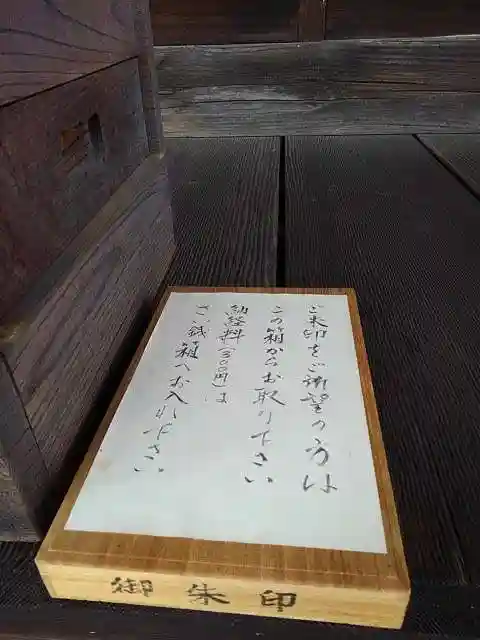 ご朱印をご希望の方は
この箱からお取り下さい
納経料(300円)は
さい銭箱へお入れ下さい
御朱印